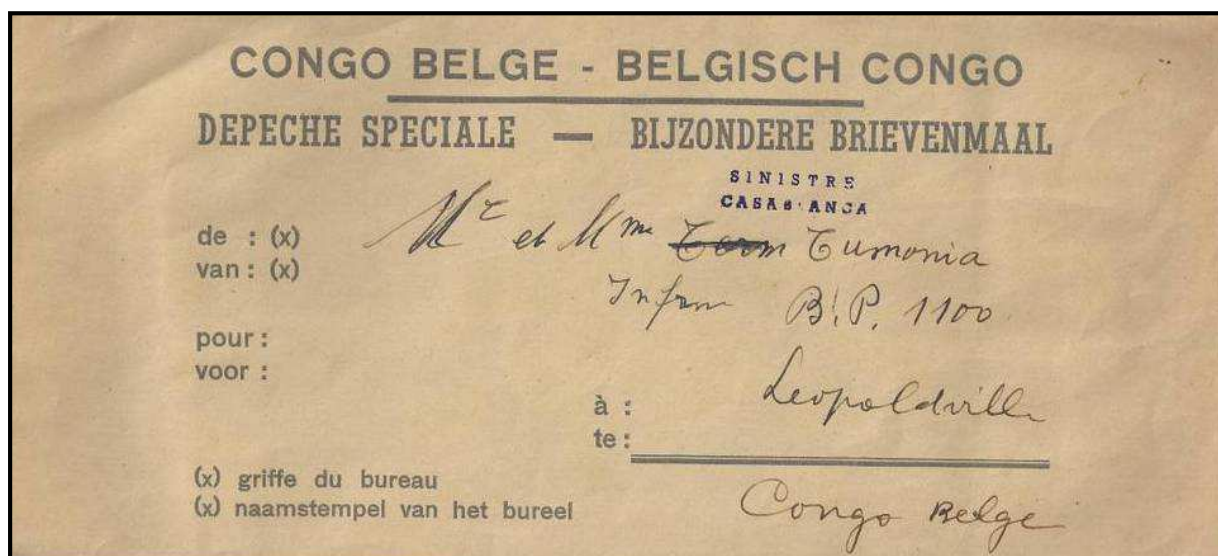 CONGO BELGE - BELGISCH CONGO
DEPECHE SPECIALE — BIJZONDERE BRIEVENMAAL
SINISTRE
CASABLANCA
de : (x)
van : (x)
Mr et Mme Tumonia
B.P. 1100
pour :
voor :
à :
te :
Leopoldville
(x) griffe du bureau
(x) naamstempel van het bureel
Congo Belge